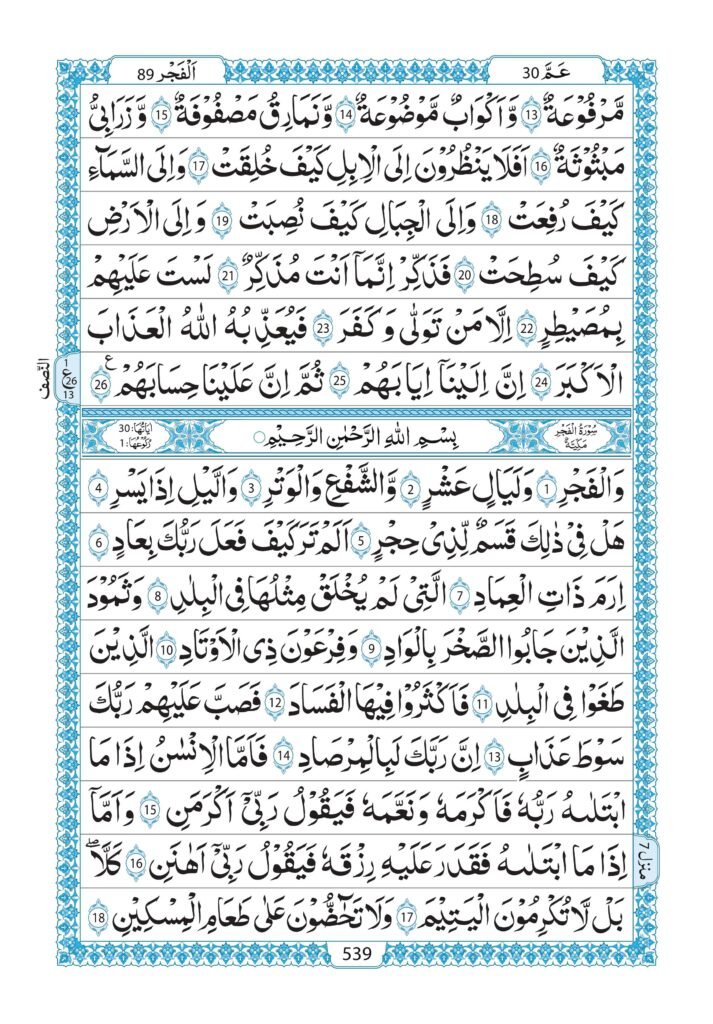 عَمَّ 30
اَلْفَجْر 89
مَّرْفُوْعَةٌ 13 وَّ اَكْوَابٌ مَّوْضُوْعَةٌ 14 وَّ نَمَارِقُ مَصْفُوْفَةٌ 15 وَّ زَرَابِیُّ
مَبْثُوْثَةٌ 16 اَفَلَا یَنْظُرُوْنَ اِلَی الْاِبِلِ كَیْفَ خُلِقَتْ 17 وَ اِلَی السَّمَآءِ
كَیْفَ رُفِعَتْ 18 وَ اِلَی الْجِبَالِ كَیْفَ نُصِبَتْ 19 وَ اِلَی الْاَرْضِ
كَیْفَ سُطِحَتْ 20 فَذَكِّرْ اِنَّمَاۤ اَنْتَ مُذَكِّرٌ 21 لَسْتَ عَلَیْهِمْ
بِمُصَیْطِرٍ 22 اِلَّا مَنْ تَوَلّٰی وَ كَفَرَ 23 فَیُعَذِّبُهُ اللّٰهُ الْعَذَابَ
الْاَكْبَرَ 24 اِنَّ اِلَیْنَاۤ اِیَابَهُمْ 25 ثُمَّ اِنَّ عَلَیْنَا حِسَابَهُمْ ع 26
النّصف
1
ع 26
13
سُوْرَةُ الْفَجْرِ
مَكِّیَّةٌ
بِسْمِ اللّٰهِ الرَّحْمٰنِ الرَّحِیْمِ
اٰیَاتُهَا: 30
رُكُوْعُهَا: 1
وَ الْفَجْرِ 1 وَ لَیَالٍ عَشْرٍ 2 وَّ الشَّفْعِ وَ الْوَتْرِ 3 وَ الَّیْلِ اِذَا یَسْرِ 4
هَلْ فِیْ ذٰلِكَ قَسَمٌ لِّذِیْ حِجْرٍ 5 اَلَمْ تَرَ كَیْفَ فَعَلَ رَبُّكَ بِعَادٍ 6
اِرَمَ ذَاتِ الْعِمَادِ 7 الَّتِیْ لَمْ یُخْلَقْ مِثْلُهَا فِی الْبِلَادِ 8 وَ ثَمُوْدَ
الَّذِیْنَ جَابُوا الصَّخْرَ بِالْوَادِ 9 وَ فِرْعَوْنَ ذِی الْاَوْتَادِ 10 الَّذِیْنَ
طَغَوْا فِی الْبِلَادِ 11 فَاَكْثَرُوْا فِیْهَا الْفَسَادَ 12 فَصَبَّ عَلَیْهِمْ رَبُّكَ
سَوْطَ عَذَابٍ 13 اِنَّ رَبَّكَ لَبِالْمِرْصَادِ 14 فَاَمَّا الْاِنْسٰنُ اِذَا مَا
ابْتَلٰىهُ رَبُّهٗ فَاَكْرَمَهٗ وَ نَعَّمَهٗ فَیَقُوْلُ رَبِّیْۤ اَكْرَمَنِ 15 وَ اَمَّاۤ
اِذَا مَا ابْتَلٰىهُ فَقَدَرَ عَلَیْهِ رِزْقَهٗ فَیَقُوْلُ رَبِّیْۤ اَهَانَنِ 16 كَلَّا ۖ
بَلْ لَّا تُكْرِمُوْنَ الْیَتِیْمَ 17 وَ لَا تَحٰٓضُّوْنَ عَلٰی طَعَامِ الْمِسْكِیْنِ 18
منزل 7
539